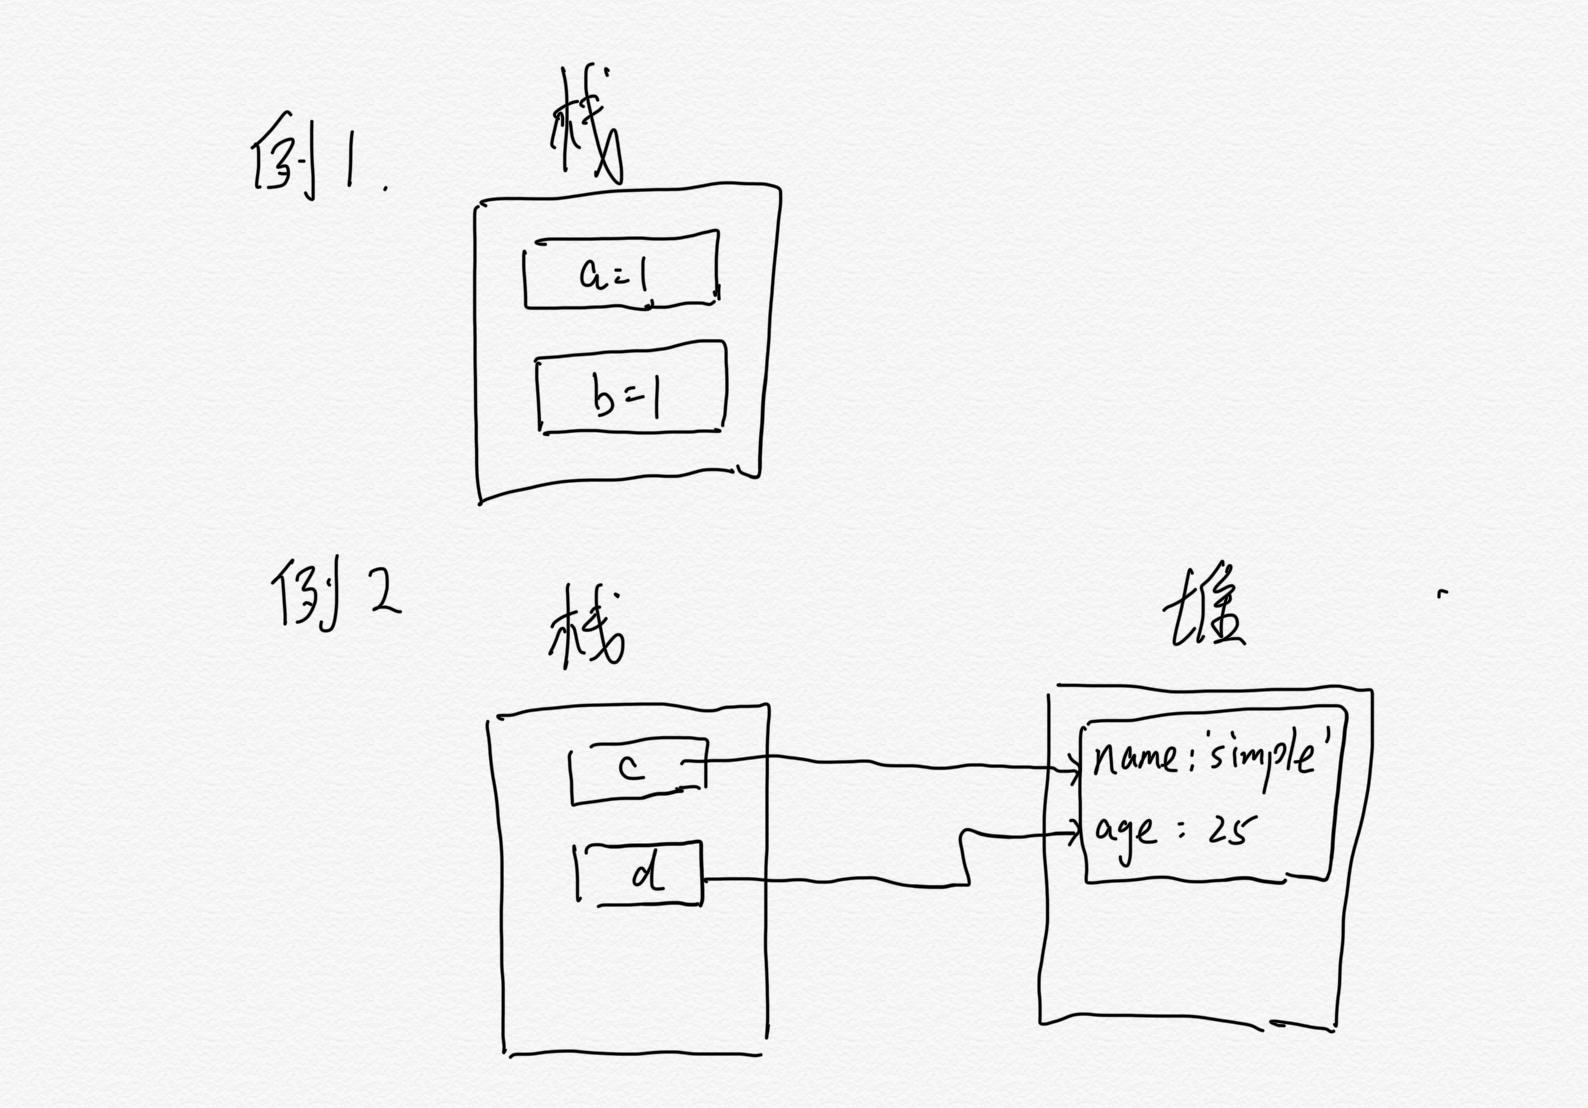 例1.
栈
a=1
b=1
例2
栈
堆
c
name:'simple'
age:25
d